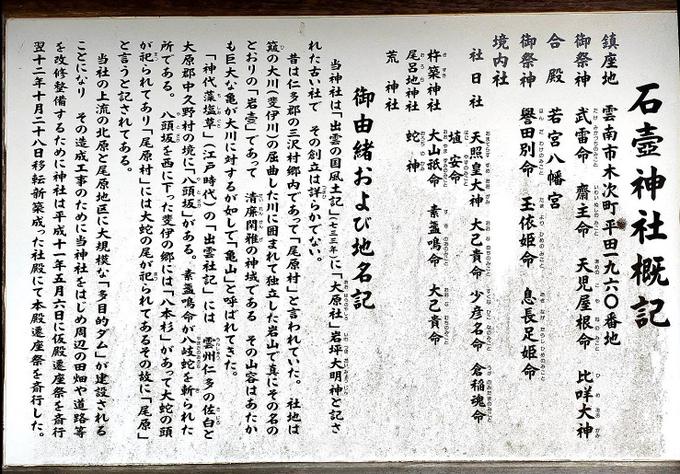 石壺神社概記
鎮座地 雲南市木次町平田一九六〇番地
御祭神 武雷命 齋主命 天児屋根命 比咩大神
合殿 若宮八幡宮
御祭神 誉田別命 玉依姫命 息長足姫命
境内社
社日社 天照皇大神 大己貴命 少彦名命 倉稲魂命
埴安命
杵築神社 大山祇命 素盞鳴命 大己貴命
尾呂地神社 蛇神
荒神社
御由緒および地名記
当神社は「出雲の国風土記」(七三三年)に「大原社」岩坪大明神と記さ
れた古い社で その創立は詳らかでない。
昔は仁多郡の三沢村郷内であって「尾原村」と言われていた。社地は
簸の大川(斐伊川)の屈曲した川に囲まれて独立した岩山で真にその名の
とおりの「岩壺」であって 清廉閑雅の神域である その山容はあたか
も巨大な亀が大川に対するが如して「亀山」と呼ばれてきた。
「神代藻塩草」(江戸時代)の「出雲社記」には 雲州仁多の佐白と
大原郡中久野村の境に「八頭坂」がある。素盞鳴命が八岐蛇を斬られた
所である。八頭坂を西に下った斐伊の郷には「八本杉」があって大蛇の頭
が祀られてあり「尾原村」には大蛇の尾が祀られてあるその故に「尾原」
と言うと記されてある。
当社の上流の北原と尾原地区に大規模な「多目的ダム」が建設される
ことになり その造成工事のために当神社をはじめ周辺の田畑や道路等
を改修整備するために神社は平成十一年五月六日に仮殿遷座祭を斎行
翌十二年十月二十八日移去新築成った社殿にて本殿遷座祭を斎行した。